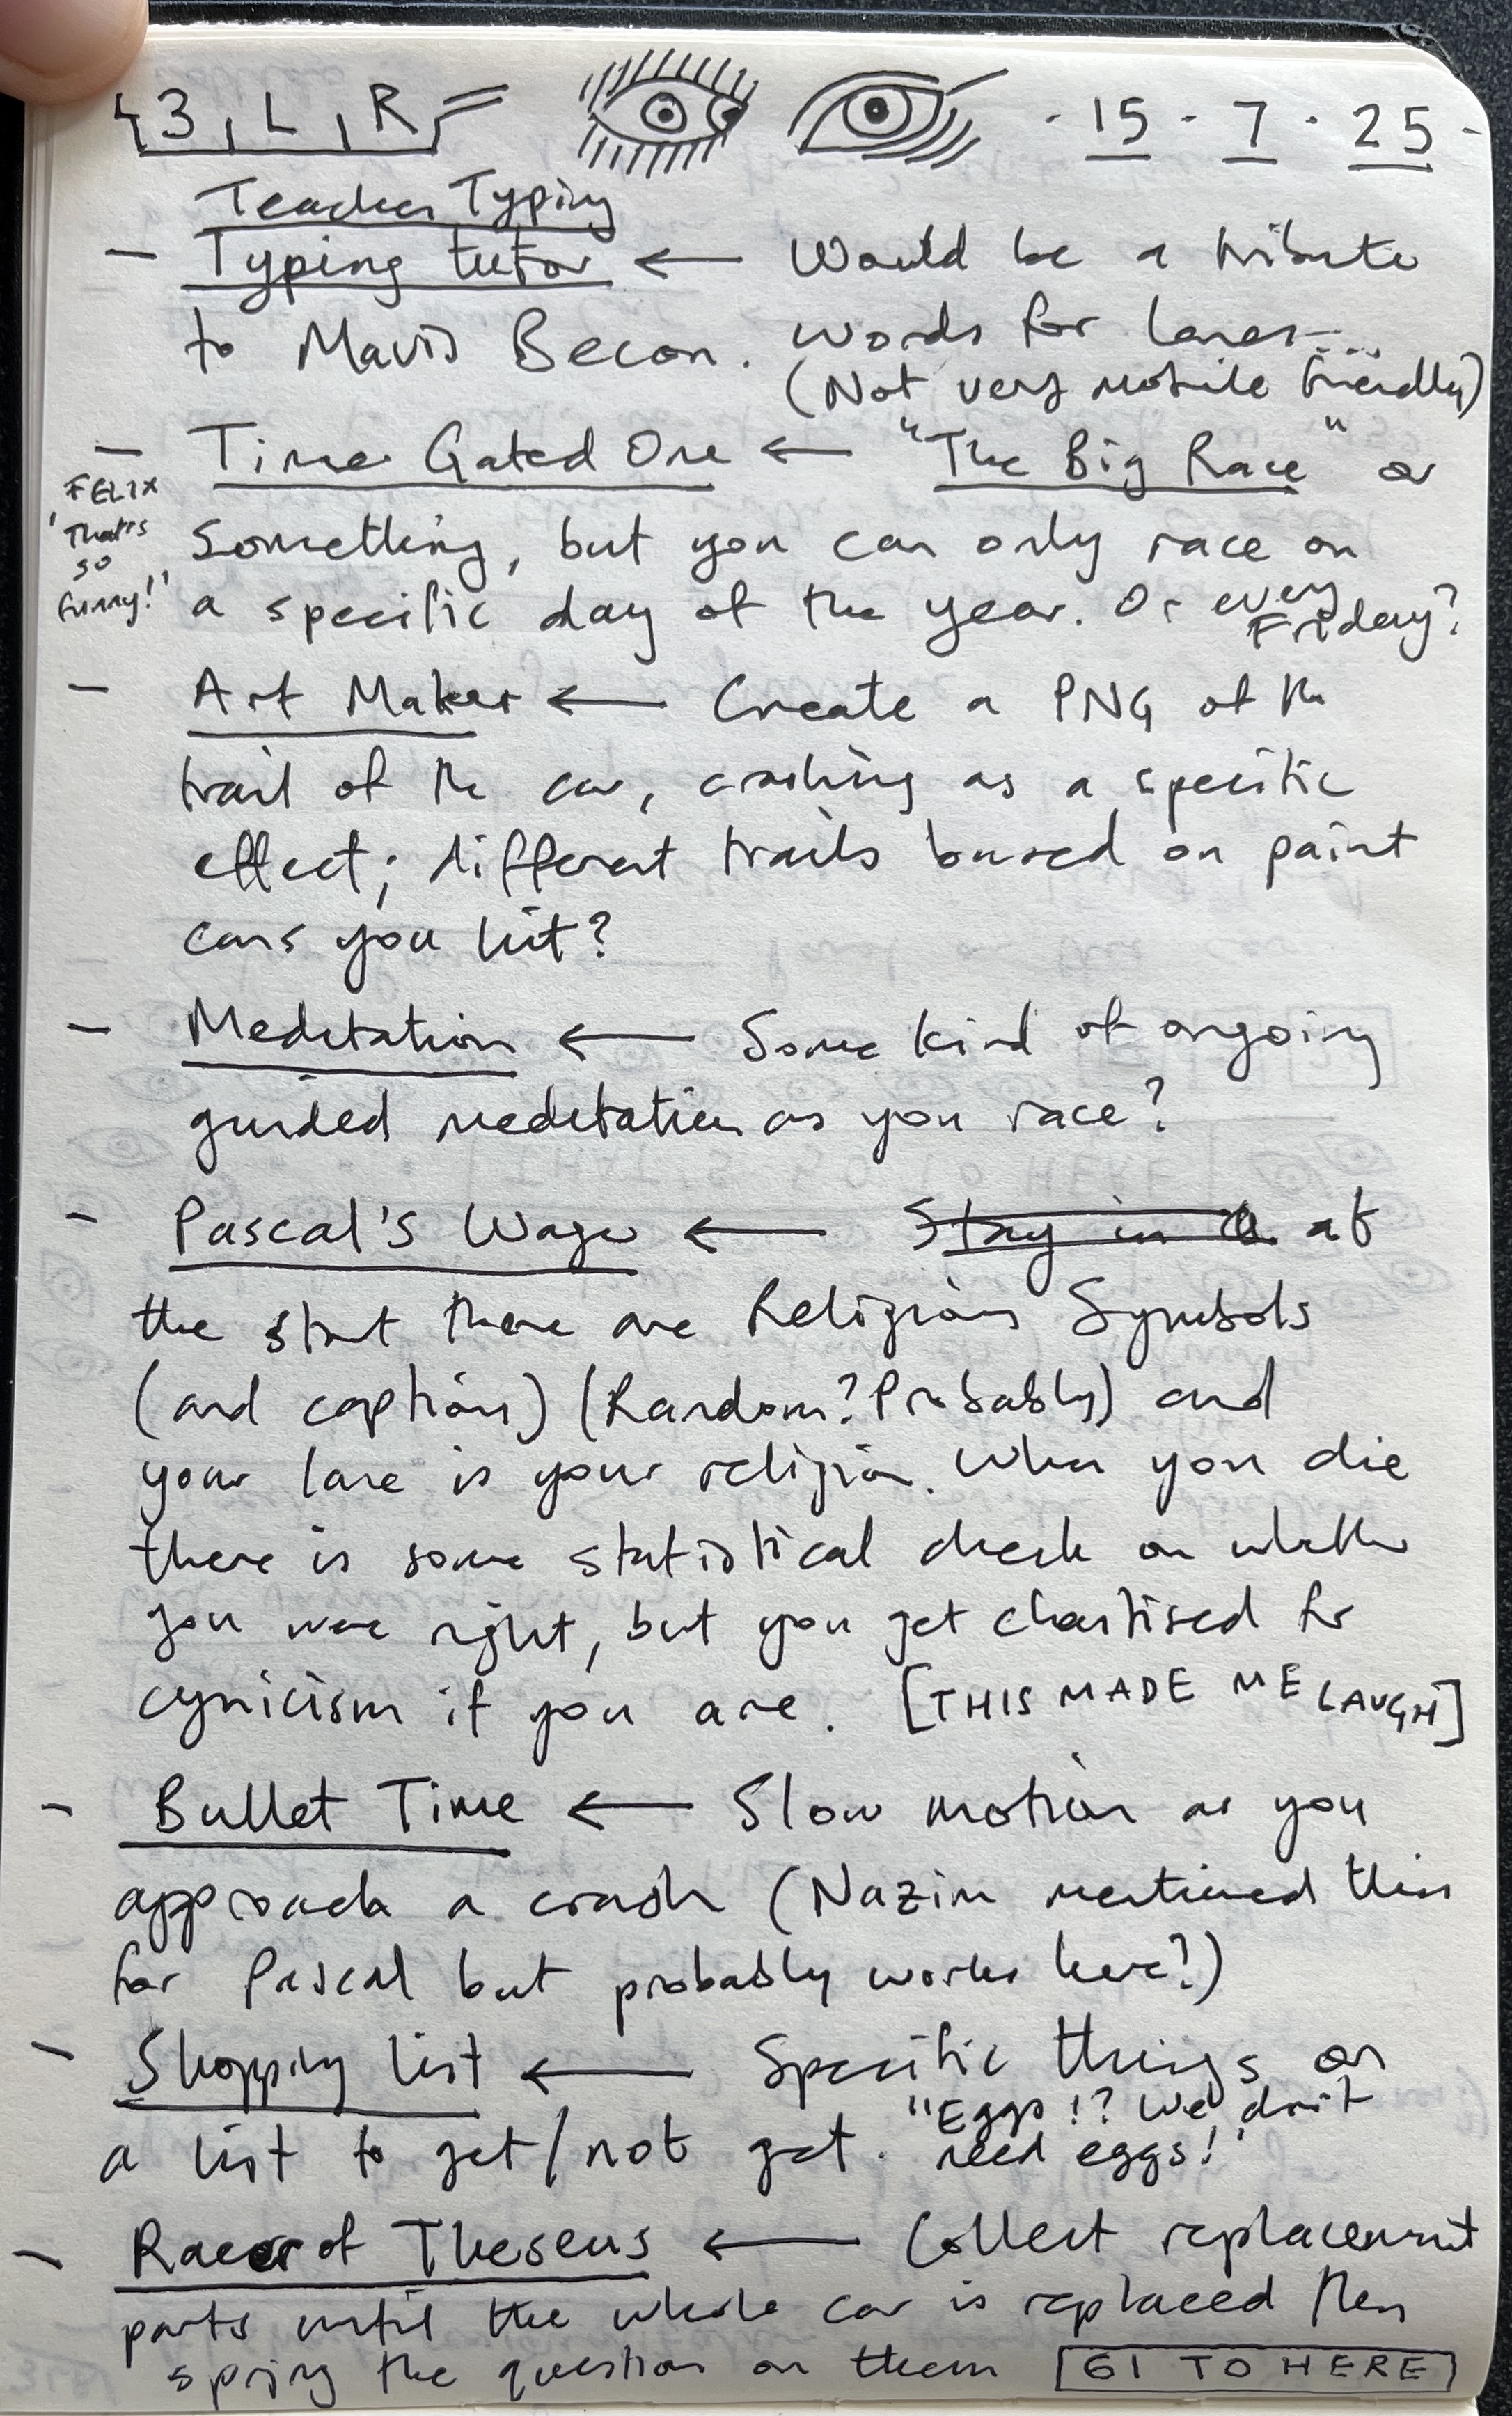 {3, L, R}
· 15 · 7 · 25 ·
Teaches Typing
- Typing tutor ← Would be a tribute
to Mavis Becon. words for lanes...
(Not very mobile friendly)
- Time Gated One ← "The Big Race" or
FELIX
'That's
so
funny!'
something, but you can only race on
a specific day of the year. Or every
Friday?
- Art Maker ← Create a PNG of the
trail of the car, crashing as a specific
effect; different trails based on paint
cans you hit?
- Meditation ← Some kind of ongoing
guided meditation as you race?
- Pascal's Wager ← Stay in a at
the start there are Religious Symbols
(and captions) (Random? Probably) and
your lane is your religion. When you die
there is some statistical check on whether
you were right, but you get chastised for
cynicism if you are. [THIS MADE ME LAUGH]
- Bullet Time ← Slow motion as you
approach a crash (Nazim mentioned this
for Pascal but probably works here?)
- Shopping list ← Specific things on
a list to get/not get. "Eggs!? We don't
need eggs!"
- Racer of Theseus ← Collect replacement
parts until the whole car is replaced then
spring the question on them [61 TO HERE]